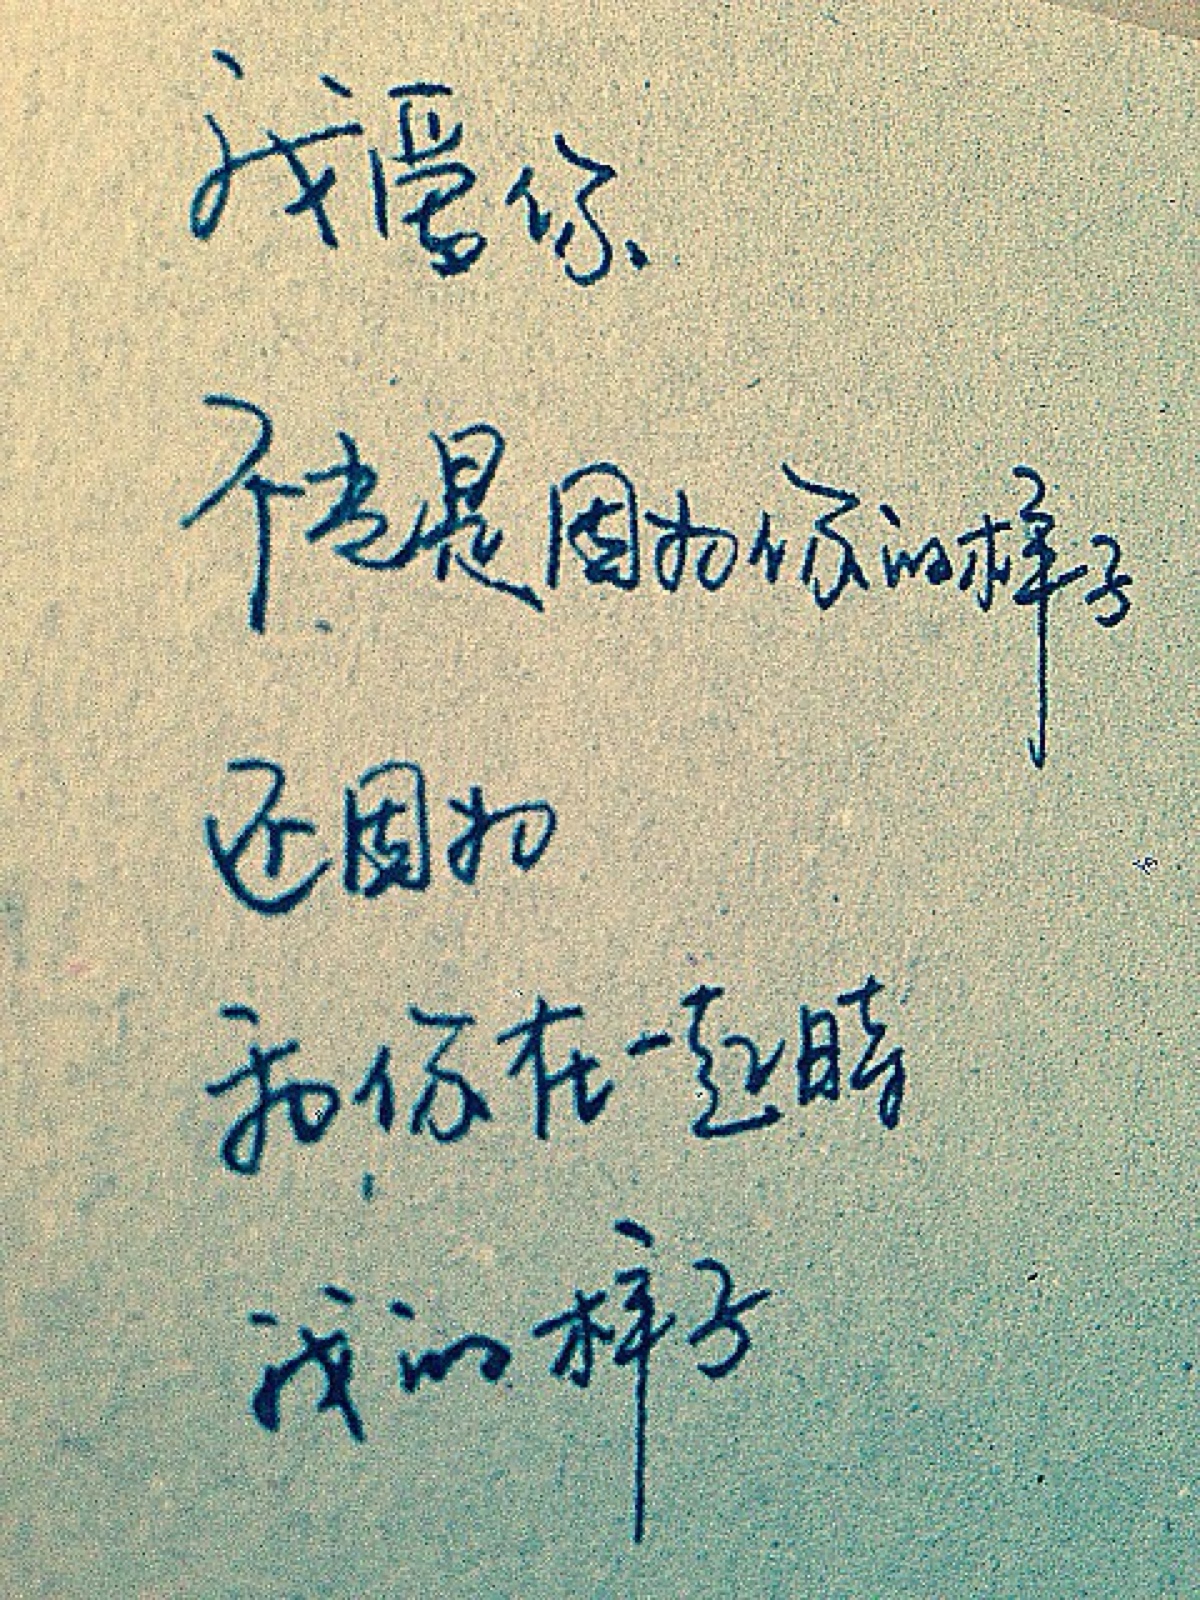 我愛你
不光是因为你的样子
还因为
和你在一起時
我的样子